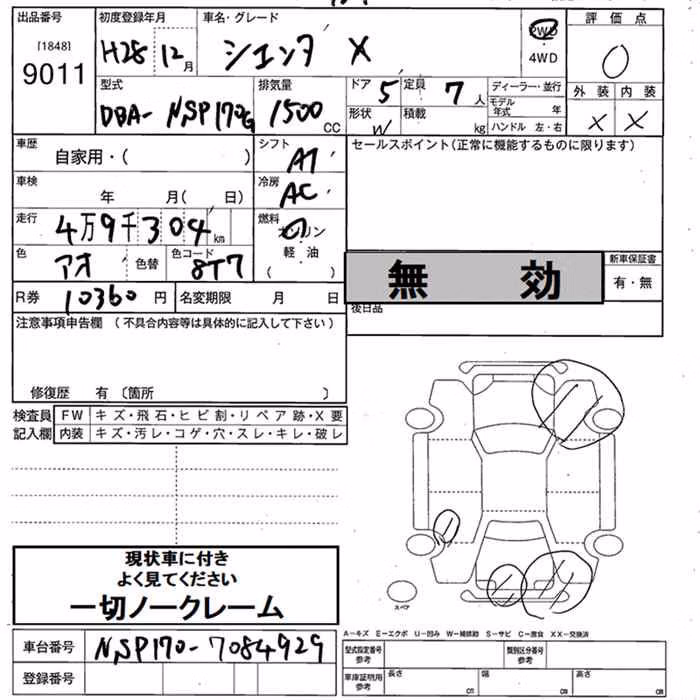 出品番号
[1848]
9011
初度登録年月
H28 12月
車名・グレード
シエンタ X
2WD
4WD
評価点
0
外装 内装
X X
型式
DBA-NSP170G
排気量
1500 CC
ドア 5
定員 7 人
形状 W
積載 kg
ディーラー・並行
モデル年式 年
ハンドル 左・右
車歴
自家用・( )
シフト AT
セールスポイント(正常に機能するものに限ります)
車検
年 月( 日)
冷房 AC
走行
4万9千304 km
燃料
ガソリン
軽油
( )
色 アオ
色替
色コード 8T7
無効
新車保証書
有・無
R券 10360 円
名変期限 月 日
後日品
注意事項申告欄 (不具合内容等は具体的に記入して下さい)
修復歴 有 〔箇所 〕
検査員記入欄
FW キズ・飛石・ヒビ割・リペア跡・X要
内装 キズ・汚レ・コゲ・穴・スレ・キレ・破レ
現状車に付き
よく見てください
一切ノークレーム
スペア
A-キズ E-エクボ U-凹み W-補修跡 S-サビ C-腐食 XX-交換済
車台番号 NSP170-7084929
登録番号
型式指定番号 参考
類別区分番号 参考
車庫証明用 参考
長さ cm
幅 cm
高さ cm